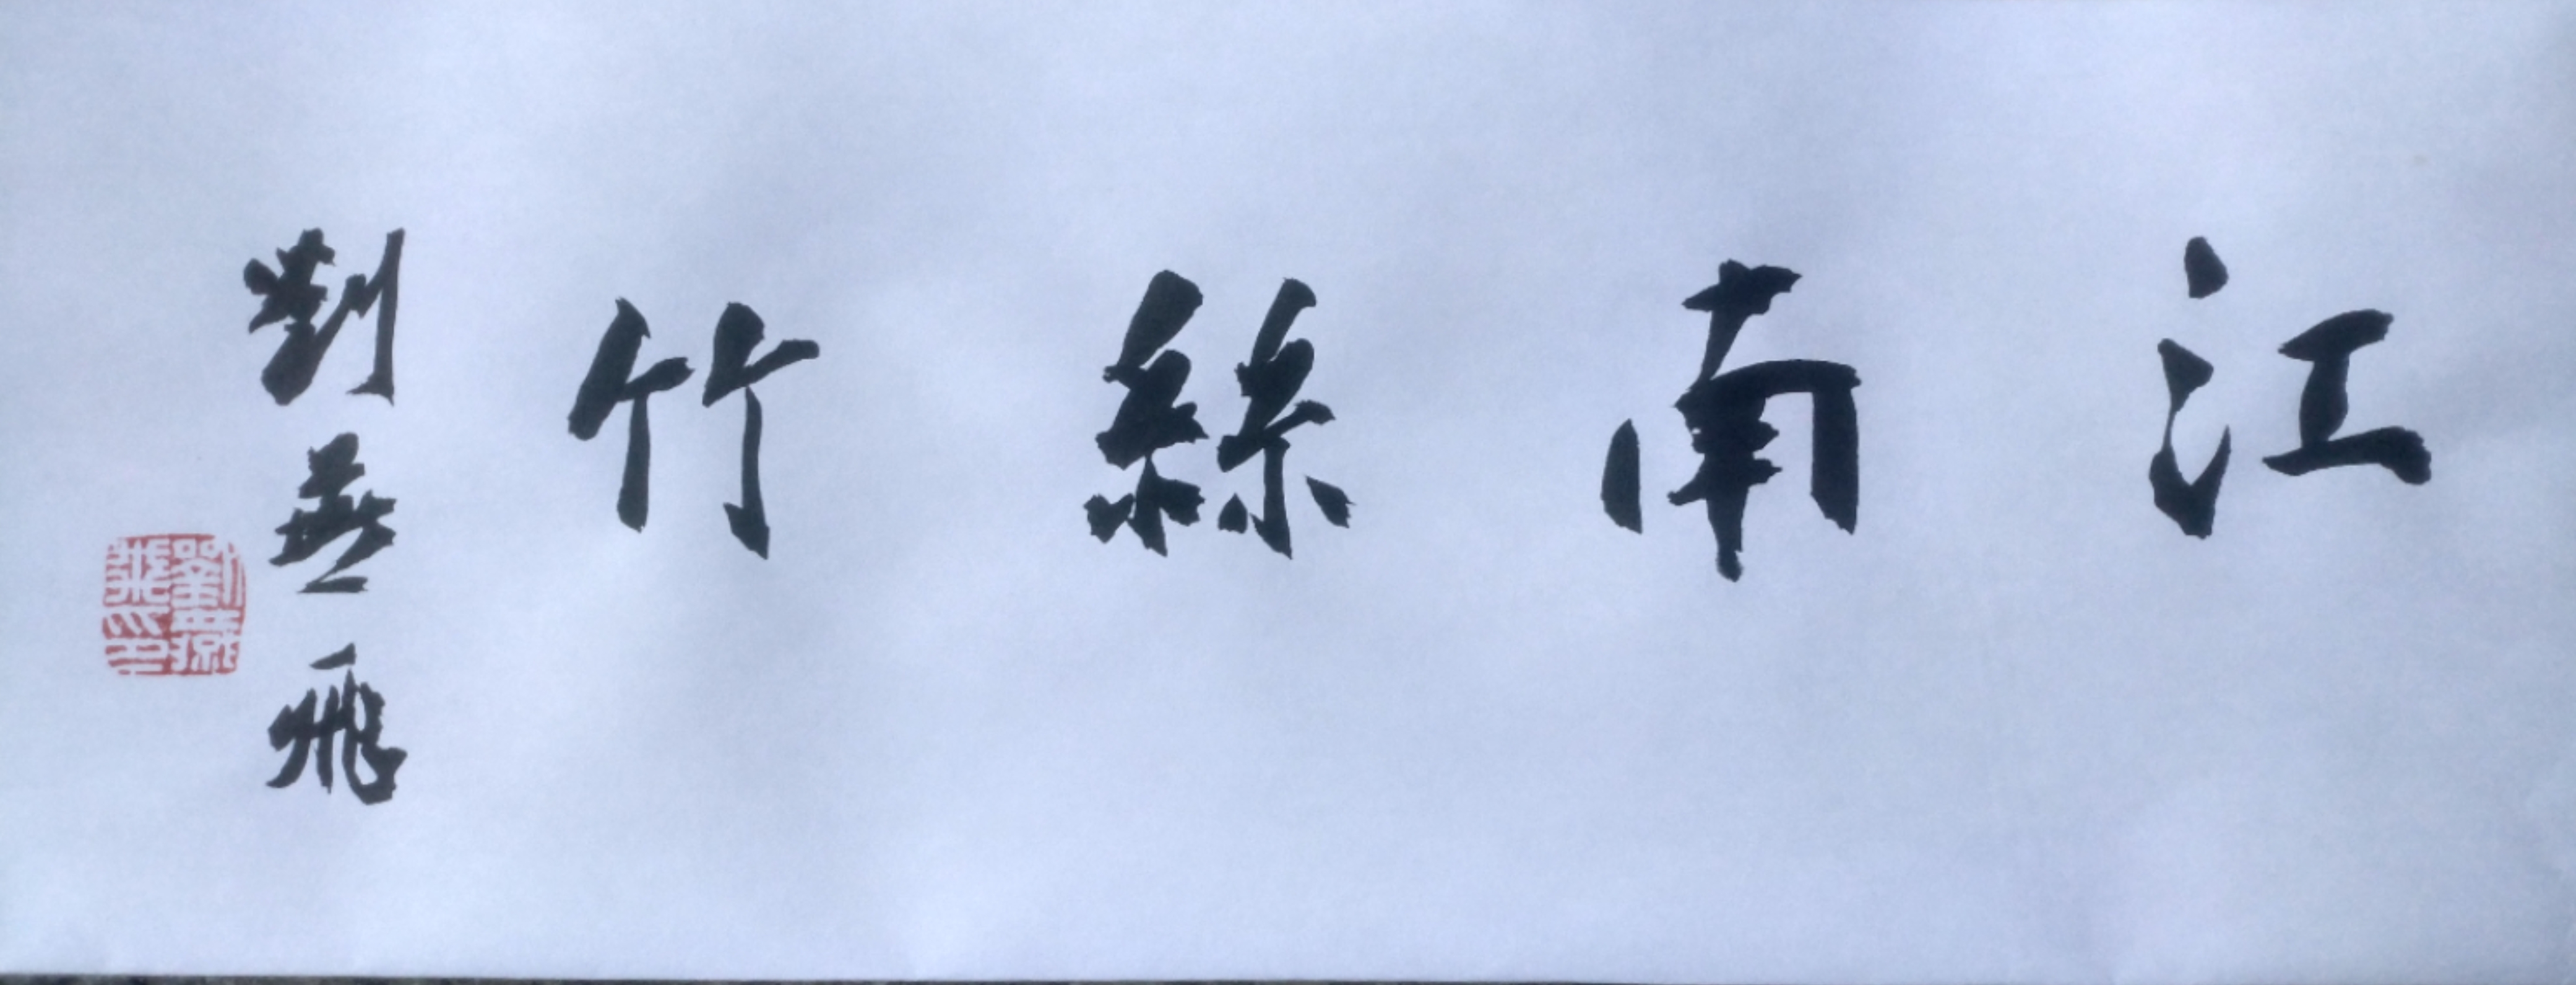 江南絲竹
劉燕飛
劉燕飛印